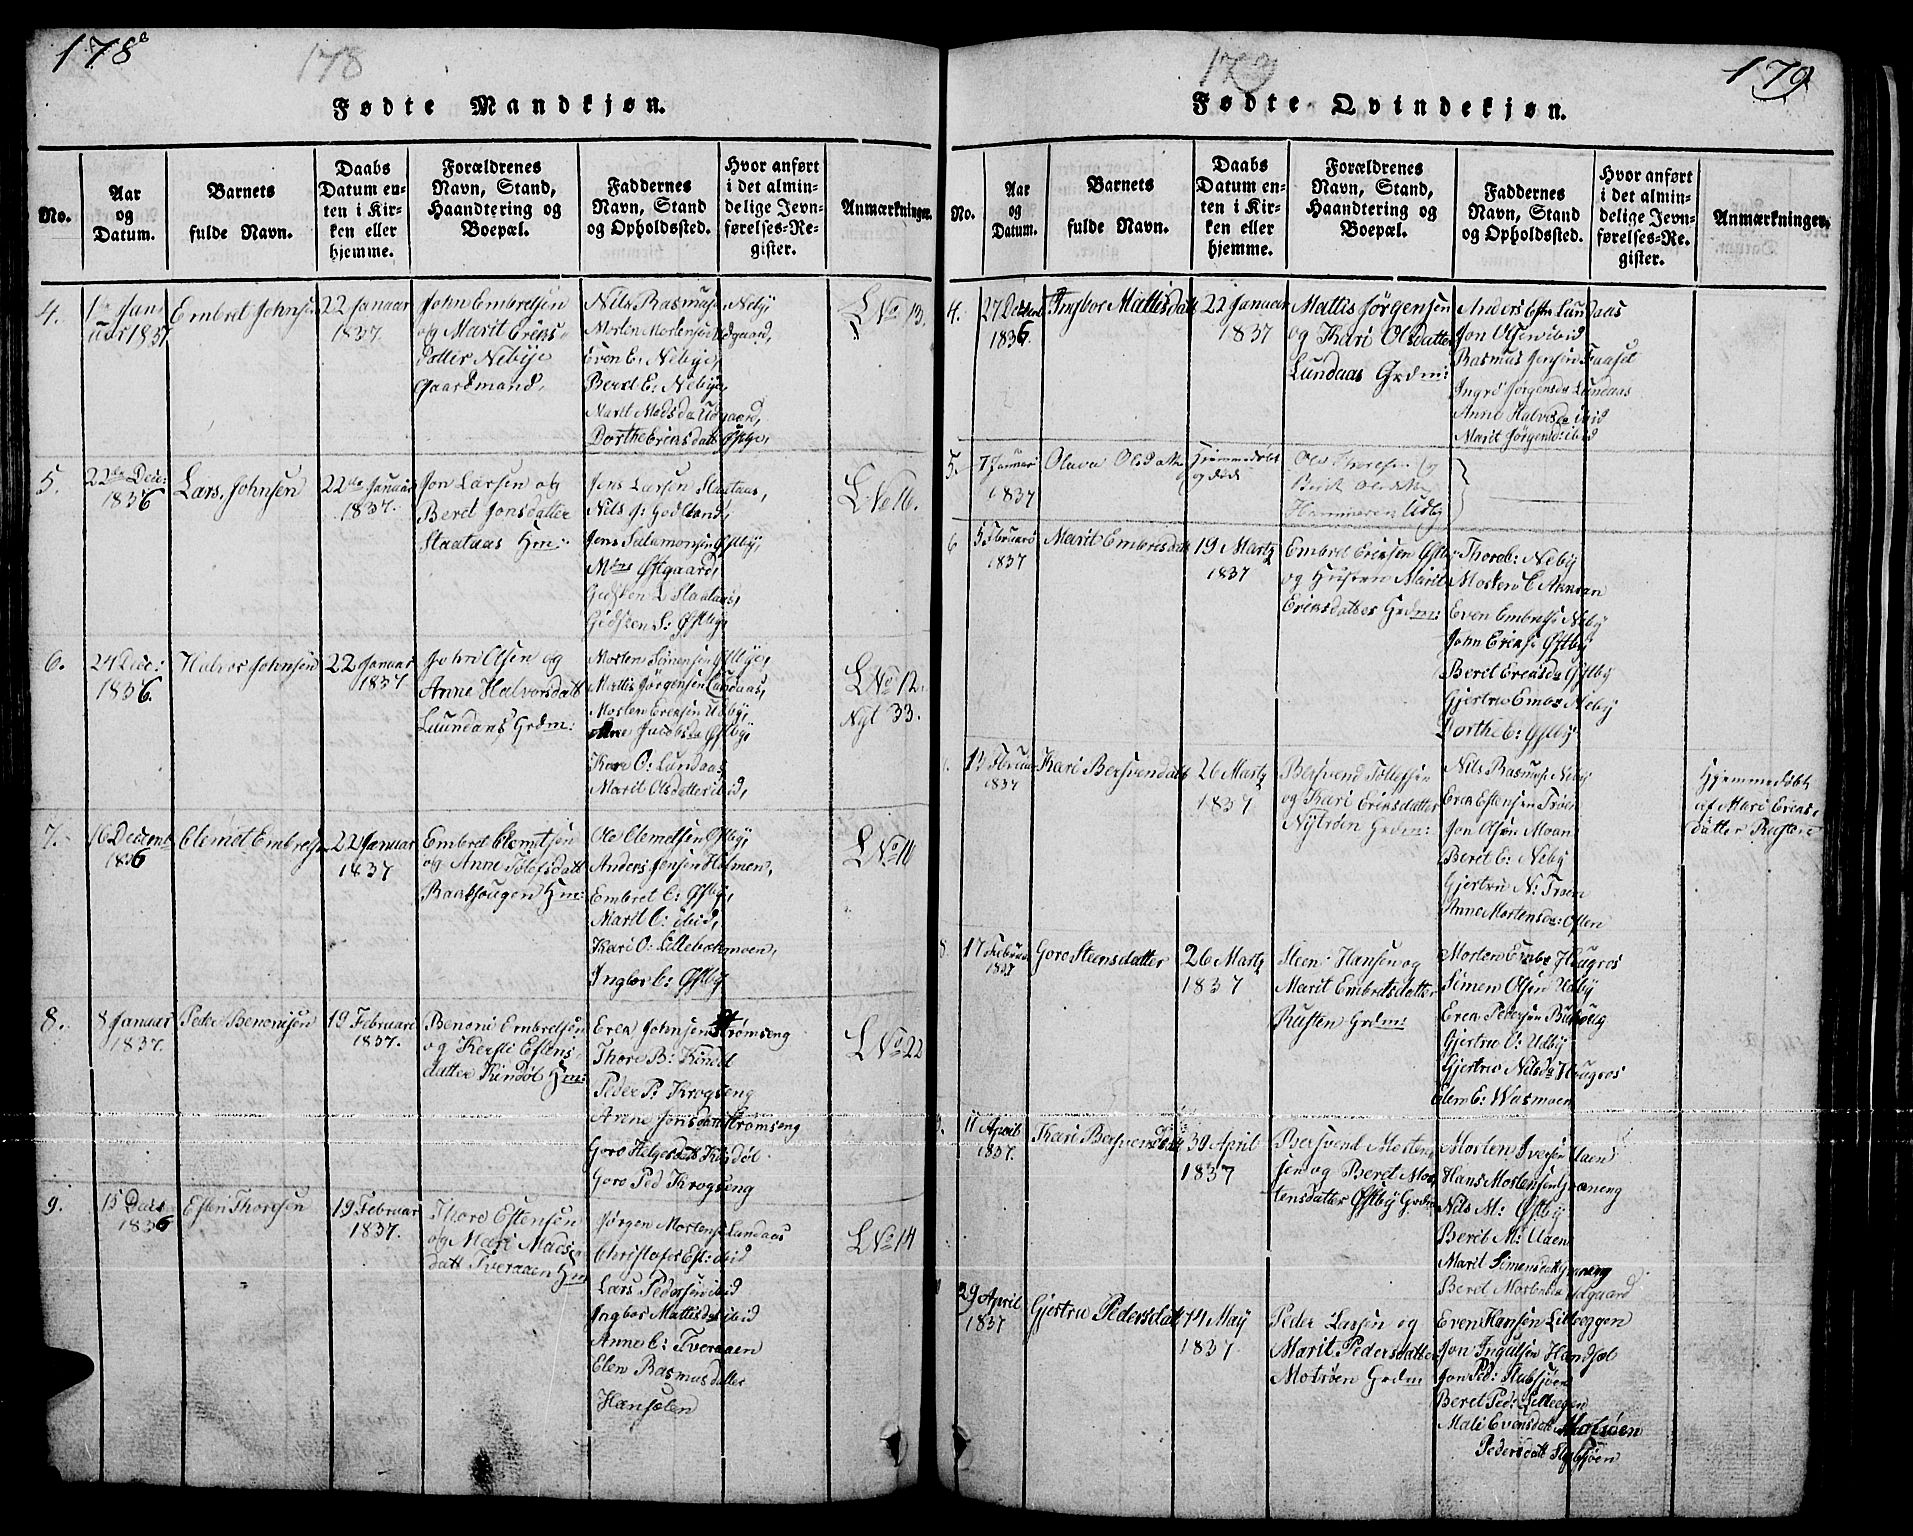 178
178
Fødte Mandkjøn.
No.
Aar og Datum.
Barnets fulde Navn.
Daabs Datum enten i Kirken eller hjemme.
Forældrenes Navn, Stand, Haandtering og Boepæl.
Faddernes Navn, Stand og Opholdssted.
Hvor anført i det almindelige Jevnførelses-Register.
Anmærkninger.
4.
1ste Januar 1837
Embret Johnsen
22 Januar
1837.
John Embretsen
og Marit Erics
Datter Nebÿe
Gaardmand,
Nils Rasmusen Nebÿ
Morten Mortensen Udgaard,
Even E: Nebÿe,
Beret E: Nebÿe,
Marit Madsda Udgaard,
Dorthe Ericsdatt Østbye,
L No 13.
5.
22de Dec:
1836
Lars Johnsen
22de Januar
1837.
Jon Larsen og
Beret Jonsdatter
Staataas Hm:
Jens Larsen Staataas,
Nils J: Godtland,
Jens Salamonsen Østbÿ,
Østgaard,
Gidsken L: Staataas,
Gidsken S: Østbÿe
L No 16.
6.
24 Dec:
1836.
Halvor Johnsen
22 Januar
1837
John Olsen og
Anne Halvorsdatt
Luundaas Grdm:
Morten Simensen Østbÿe,
Mattis Jørgensen Lundaas,
Morten Ericsen Udbÿ,
Jacobsda Østbÿ,
Kari O: Lundaas
Marit Olsdatter ibid,
L No 12.
Nyt 33.
7.
16 Decemb
1836
Clemet Embretsen
22 Januar
1837
Embret Clemitsen
og Anne Tolefsdatt
Baakhougen Hm:
Ole Clemetsen Østbÿ,
Anders Jensen Holmen,
Embret E: Østbÿ,
Marit C: ibid,
Kari O: Lillebakmoen,
Ingbor C: Østbÿ
L No 10
8.
8 Januar
1837.
Peder Benonisen
19 Februari
1837.
Benoni Embretsen
og Kersti Estens
datter Kindøl Hm:
Erca Johnsen Strømseng
Thore B: Kindøl
Peder P: Krogseng
Arene Jonsdatt Strømseng
Goro Helgesdatt Kindøl
Goro Ped Krogseng
L No 22
9.
15 Decs
1836
Esten Thoresen
19 Februar
1837.
Thore Estensen
og Mari Mads
datt Tveraaen Hm
Jørgen Mortens Lundaas
Christofer Est: ibid
Lars Pedersen ibid
Ingbor Mattisda ibid
Anne C: Tveraaen
Elen Rasmusdatter
Hansolen
L No 14
179
179
Fødte Qvindekjøn.
No.
Aar og Datum.
Barnets fulde Navn.
Daabs Datum enten i Kirken eller hjemme.
Forældrenes Navn, Stand, Haandtering og Boepæl.
Faddernes Navn, Stand og Opholdssted.
Hvor anført i det almindelige Jevnførelses-Register.
Anmærkninger.
4.
27 Decemb
1836
Ingbor Mattisdatt
22 Januar
1837
Mattis Jørgensen
og Kari Olsdatter
Lundaas Grdm:
Anders Estn Lundaas
Jon Olsen ibid
Rasmus Jensen Faaset
Ingrø Jørgensda Lundaas
Anne Halvsda ibid
Marit Jørgensd: ibid
5.
7 Januari
1837
Olava Olsdatte
Hjemmedøbt
og død
Ole Thoresen og
Berit Olsdatte
Hammeren Udby
6
5 Februari
1837
Marit Embretsdatt
19 Martz
1837
Embret Ericsen Østbÿ
og Hustru Marit
Ericsdatter Grdm:
Thore E: Nebÿ
Morten E Aanran
Even Embretse Nebÿ
John Ericse Østbÿ
Berit Ericsda Østbÿ
Gjertru Embr Nebÿ
Dorthe E: Østbÿ
12 Februar
1837
Kari Bersvendatt
26 Martz
1837
Bersvend Tollefsen
og Kari Ericsdatter
Nytrøen Grdm:
Nils Rasmuse Nebÿ
Erca Estensen Trøen
Jon Olsen Moan
Berit E: Nebÿ
Gjertru N: Troen
Anne Mortensda: Østen
Hjemmedøbt
af Mari Erics
datter Rusten
8
17 Februar
1837
Goro Steensdatter
26 Martz
1837
Steen Hansen og
Marit Embretsdatter
Rusten Grdm:
Morten Embr Hougros
Simen Olsen Udbÿ
Erca Pedersen Bukhoug
Gjertru O: Udbÿ
Gjertru Nilsda Hougros
Elen E: Wasmoen
9.
11 April
1837.
Kari Bersvendatt
30 April
1837
Bersvend Morten
sen og Beret Mor
tensdatter Østbÿ Grdm
Morten Iversen Uaen
Hans Mortensen Grøneng
Nils M: Østbÿ
Berit M: Uaen
Marit Simensdatt Grøneng
Beret Mortensda Udgaard
29 April
1837
Gjertru Pedersdatt
14 Maÿ
1837
Peder Larsen og
Marit Pedersdatter
Motrøen Grdm
Even Hansen Lilleeggen
Jon Ingulsen Handsøl
Jon Ped: Stubsjøen
Beret Ped: Lilleegen
Mali Evensdatt Motrøen
Pedersdatt Stubsjøen